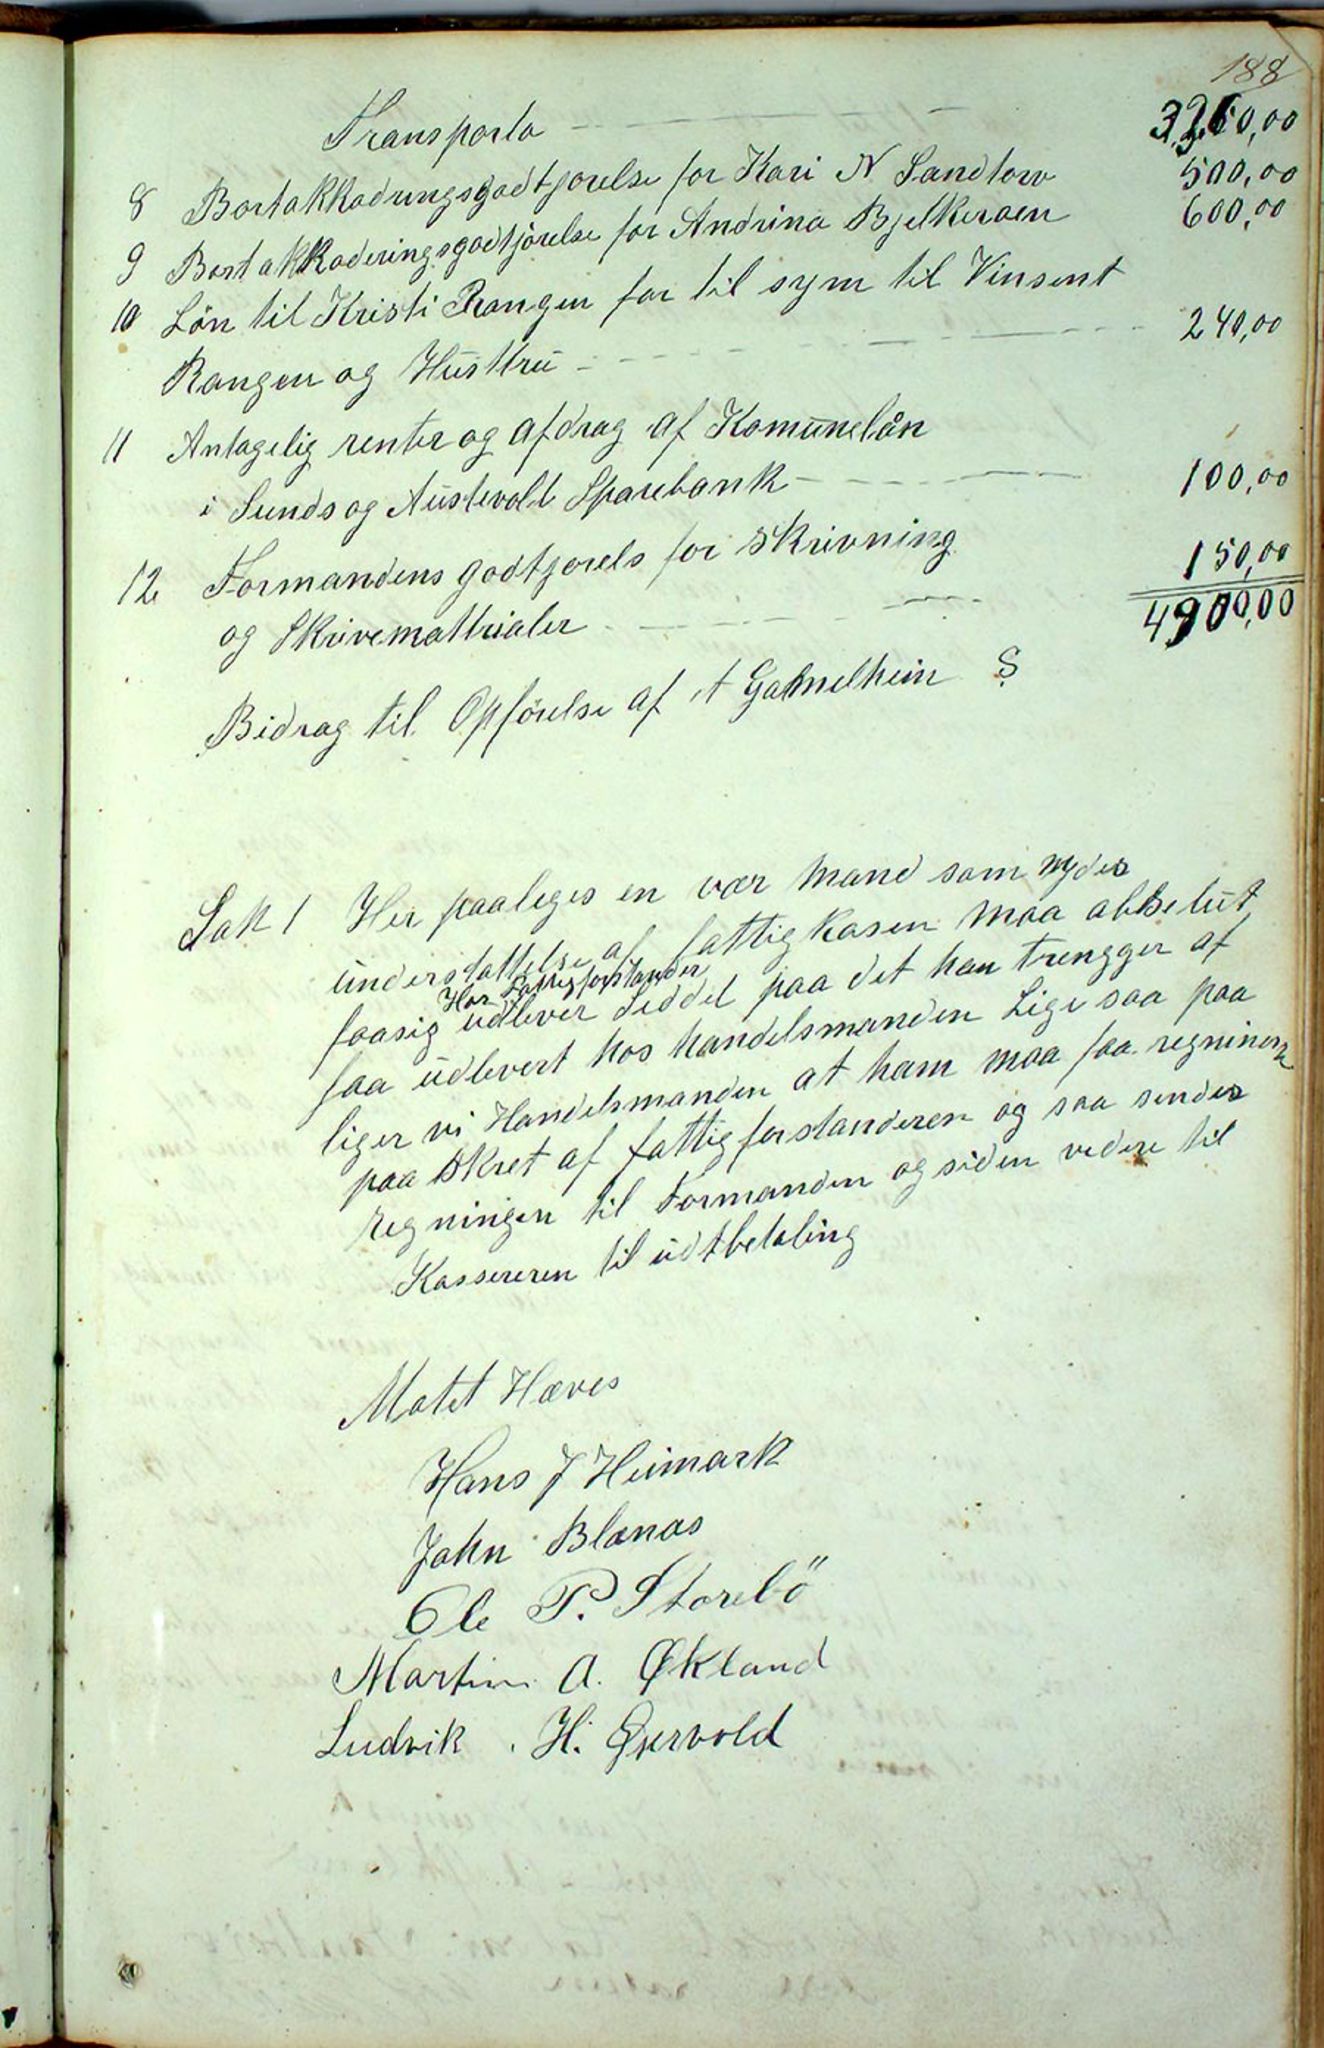 188
Transporto 3260,00
8 Bortakkodringsgodtjorelse for Kari N Sandtorv 500,00
9 Bortakkoderingsgodtjörelse for Andrina Bjelkeroen 600,00
10 Lön til Kristi Rangen for til sym til Vinsent
Rangen og Hustru 240,00
11 Antagelig renter og afdrag af Komunelån
i Sunds og Austevold Sparebank 100,00
12 Formandens godtjorels for Skrivning
og Skrivemattrialer 150,00
4900,00
Bidrag til Opförelse af et Gamelheim
Sak 1 Her paaleges en vær mand som nyder
understattelse af fattigkasen maa abselut
Hos Fattigforstander
faasig udlever Seddel paa det han trengger af
faa udlevert hos handelsmanden Lige saa paa
liger vi Handelsmanden at ham maa faa regninern
paa Skret af fattigforstanderen og saa sender
regningen til Formanden og siden vedere til
Kassereren til udtbetaling
Motet Hæves
Hans J Heimark
John Blænæs
Ole P. Storebö
Martin A. Økland
Ludvik H. Østervold